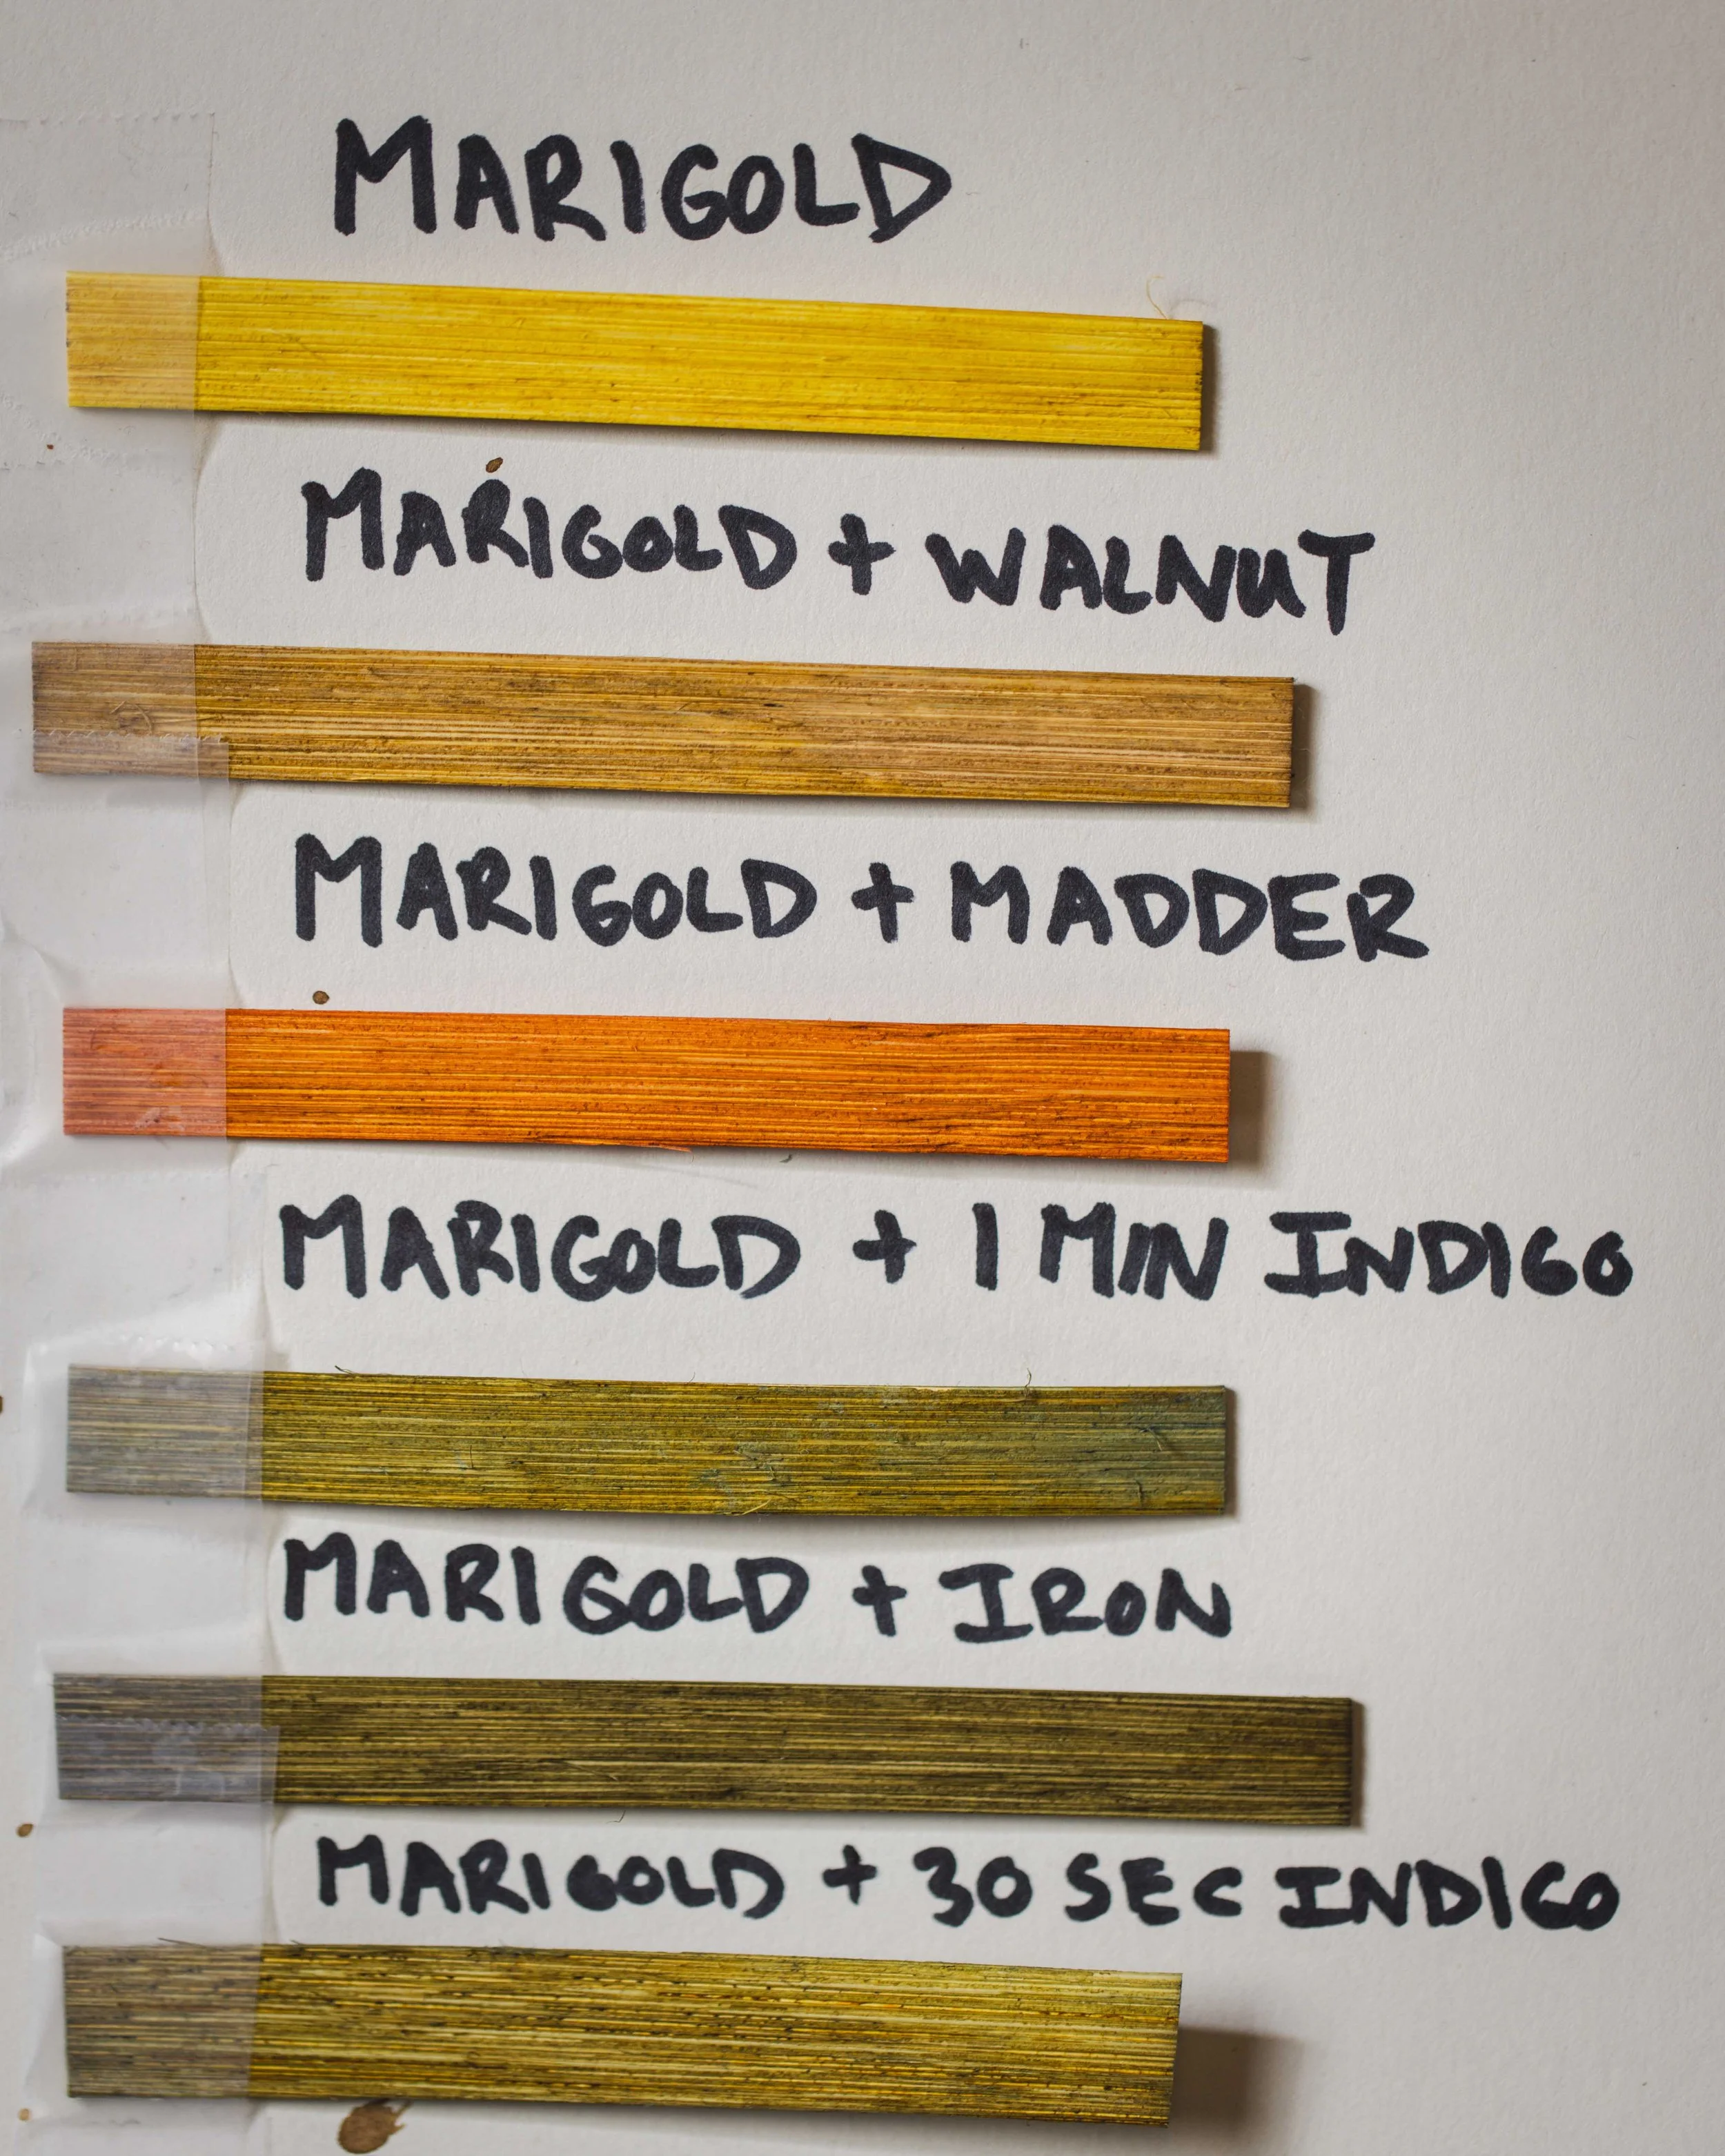 MARIGOLD
MARIGOLD + WALNUT
MARIGOLD + MADDER
MARIGOLD + 1 MIN INDIGO
MARIGOLD + IRON
MARIGOLD + 30 SEC INDIGO